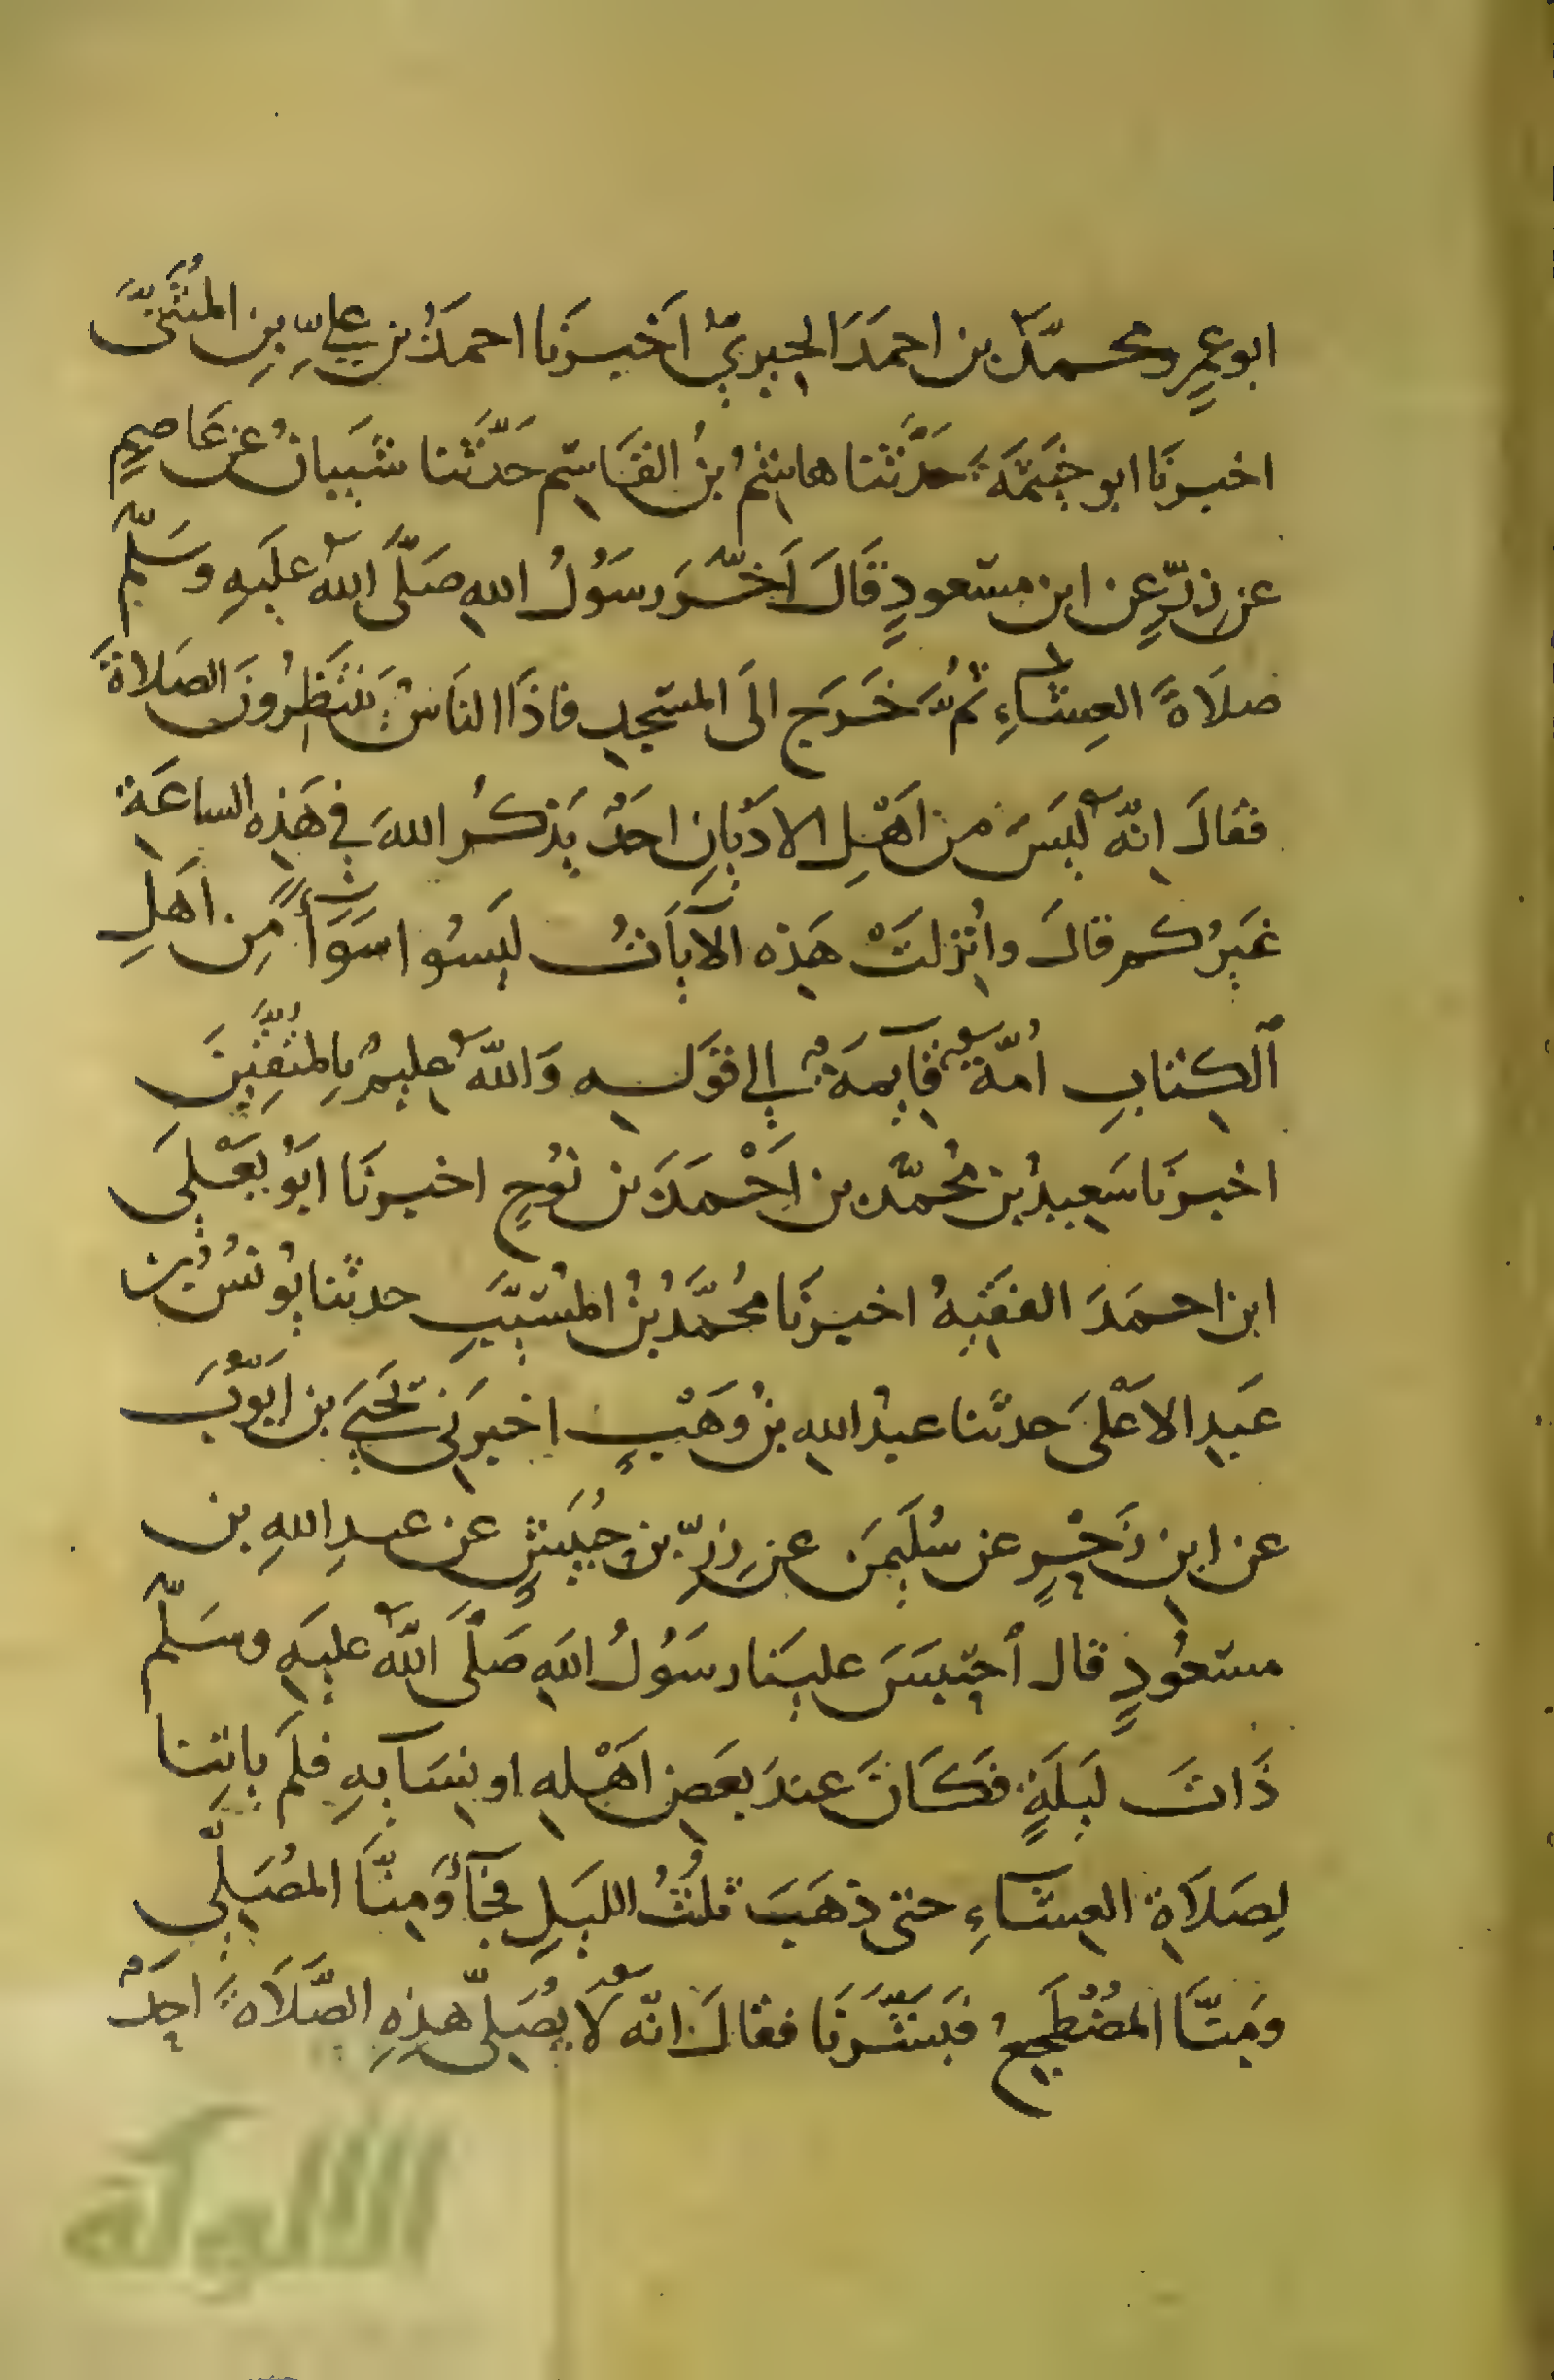 ابو عمرٍو محمدُ بن احمدَ الحِيريُّ اَخبرنَا احمدُ بن عليِّ بنِ المُثنَّى
اخبرنَا ابو خيثمةَ حدَّثنا هاشمُ بنُ القاسِم حدَّثنا شَيبانُ عن عَاصِمٍ
عن زِرٍّ عن ابن مسعودٍ قَالَ اَخَّرَ رسُولُ اللهِ صَلَّى اللهُ عليهِ وسَلَّم
صلَاةَ العِشاءِ ثُمَّ خَرَج الَى المسجدِ فاذَا الناسُ يَنتظِرُونَ الصلاةَ
فقالَ انّه ليسَ من اَهْلِ الادْيانِ احَدٌ يَذكُر اللهَ في هَذِه الساعَةِ
غيرُكم قالَ واُنزلَتْ هَذِه الآيَاتُ ليسُوا سَوَآءً مِن اَهلِ
الكتابِ اُمّةٌ قايمَةٌ الى قوَلِه وَاللهُ عليمٌ بِالمُتّقِينَ
اخبرنَا سَعيدُ بن مُحمّد بن اَحْمدَ بن نوُحٍ اخبرنَا ابوُ يعْلَى
ابن احمَدَ الفقيهُ اخبرنَا مُحمَّدُ بنُ المُسَيَّبِ حدثنا يوُنسُ بن
عَبدِ الاعْلَى حدثنا عبدُ اللهِ بنُ وَهْبٍ اخبرَنى يَحيَى بن ايوّبَ
عن ابن زَحْرٍ عن سُليمَن عن زِرِّ بن حُبَيشٍ عن عبدِ اللهِ بن
مسعُودٍ قال اُحتبسَ علينَا رسَوُلُ اللهِ صَلَّى اللهُ عليهِ وسَلَّم
ذَاتَ ليلَةٍ فكَانَ عندَ بعَض اَهْلِه او نِسَآيهِ فلَم يأتِنا
لِصَلَاةِ العِشَآءِ حتى ذهَبَ ثلثُ الليلِ فجآءَ وَمِنَّا المُصَلِّى
وَمِنَّا المُضْطَجِعُ فبَشَّرَنَا فقالَ انّه لَا يُصَلِّى هذِهِ الصَّلَاةَ احَدٌ
الألوكة